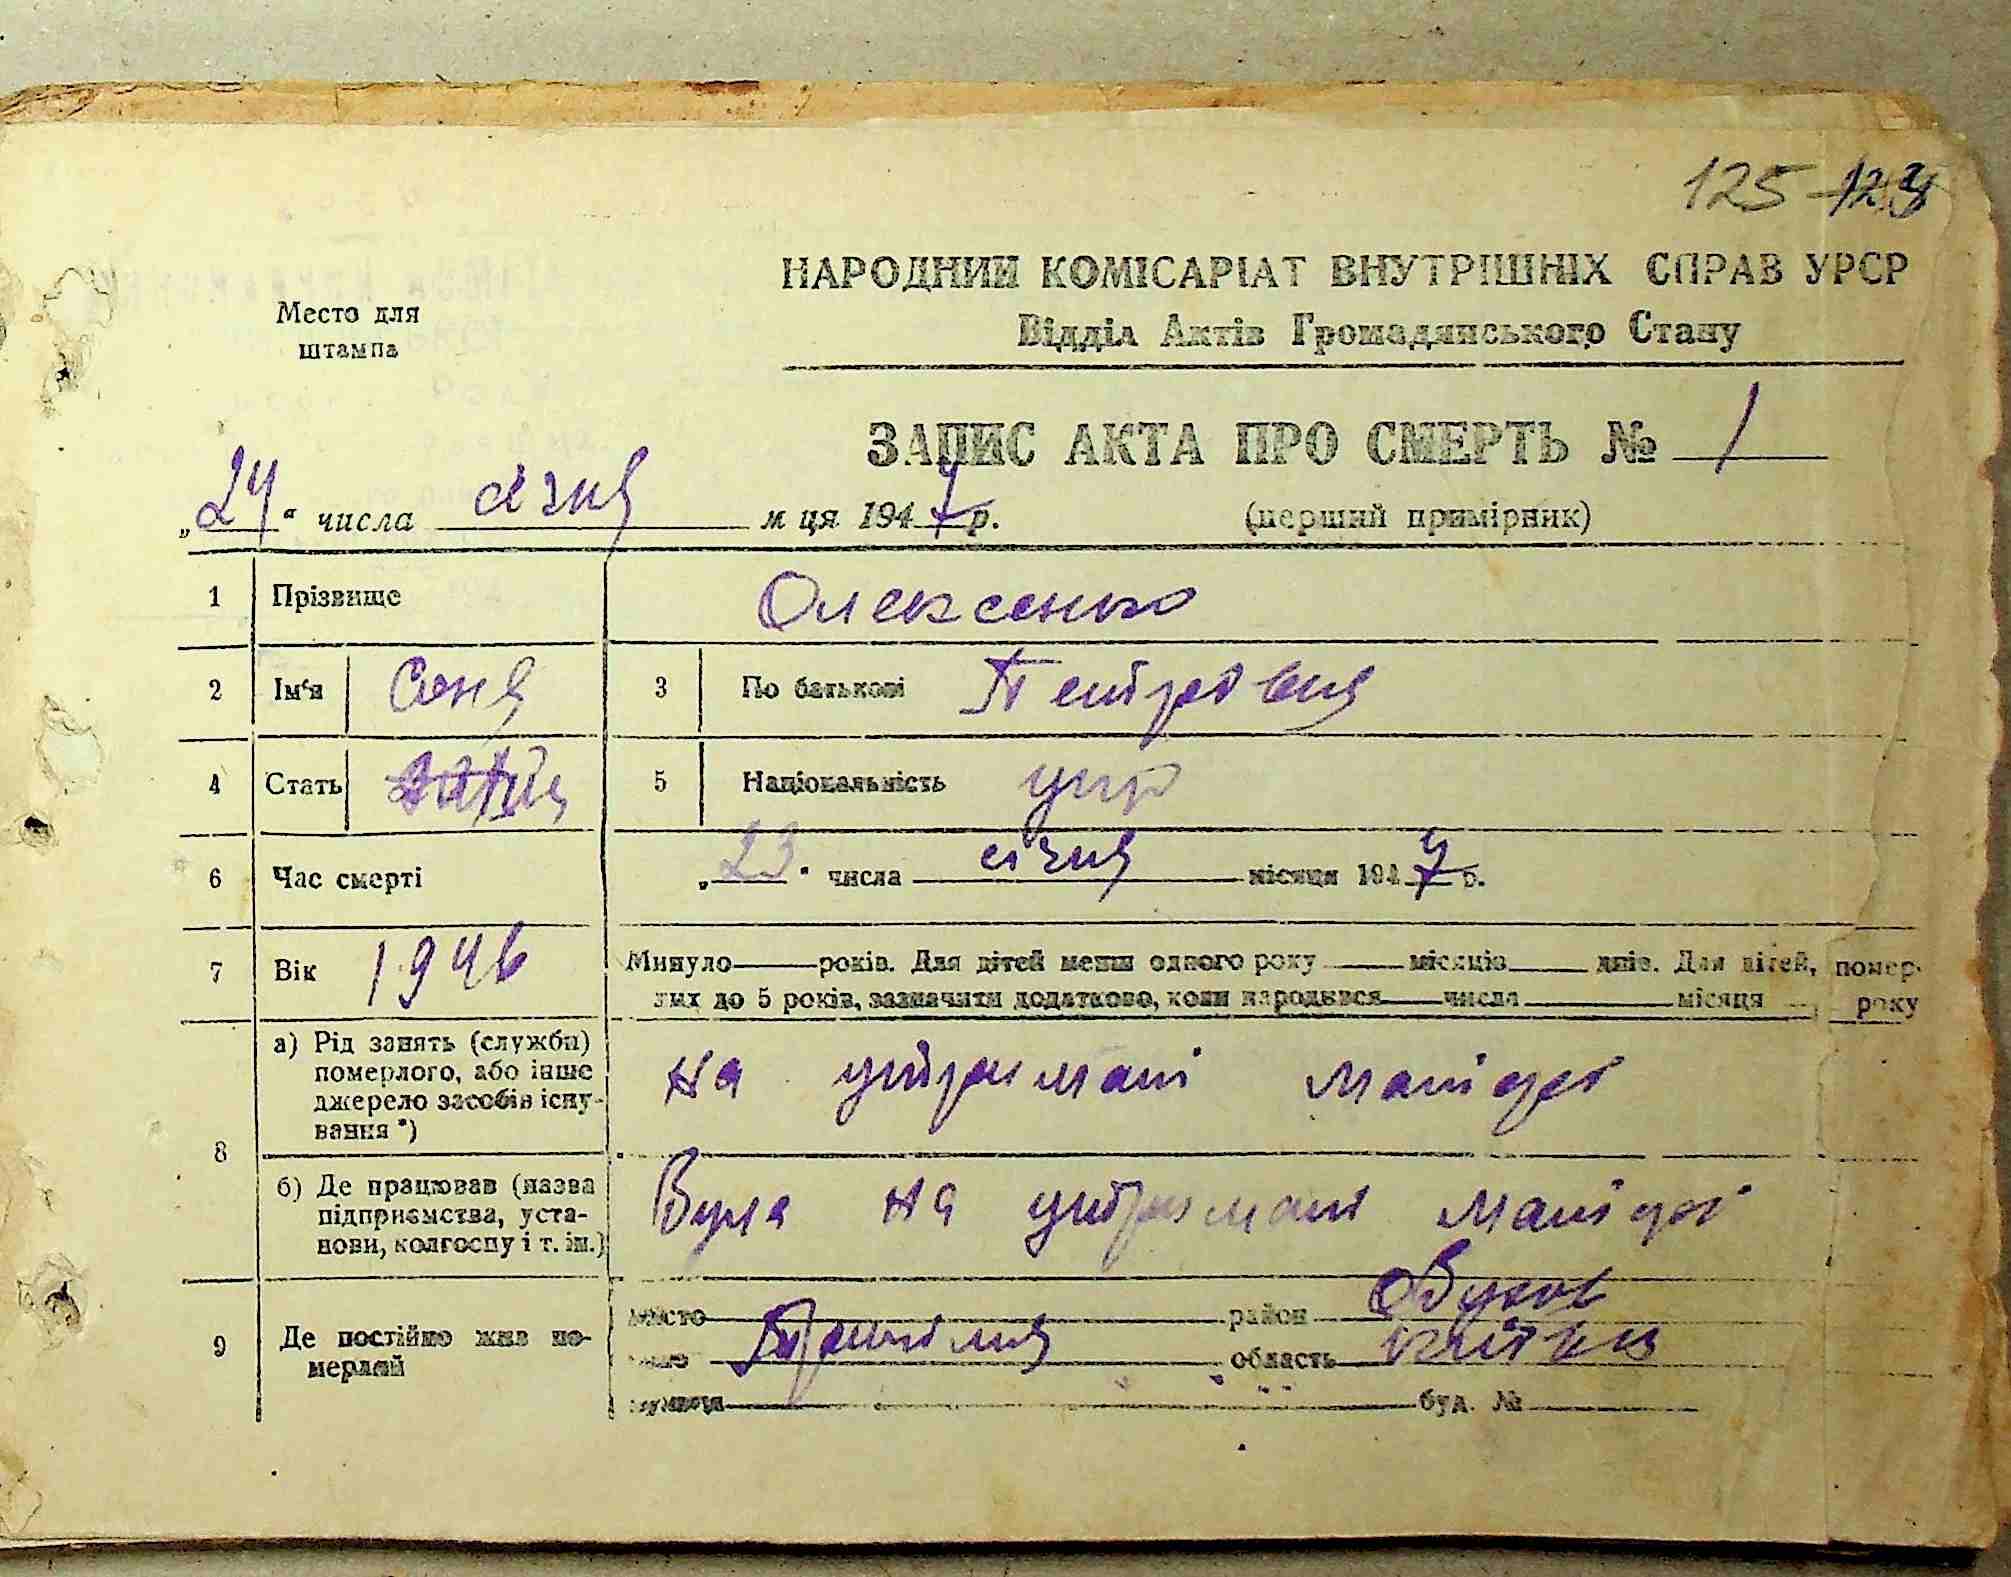 125 123
НАРОДНИЙ КОМІСАРІАТ ВНУТРІШНІХ СПРАВ УРСР
Место для
штампа
Відділ Актів Громадянського Стану
ЗАПИС АКТА ПРО СМЕРТЬ № 1
„24“ числа січня м ця 1947 р. (перший примірник)
1 Прізвище Олексенко
2 Ім'я Соня 3 По батькові Петрівня
4 Стать 5 Національність укр
6 Час смерті „23“ числа січня місяця 1947 р.
7 Вік 1946 Минуло років. Для дітей менш одного року місяців днів. Для дітей, помер-
лих до 5 років, зазначити додатково, коли народився числа місяця року
8 а) Рід занять (служби)
померлого, або інше
джерело засобів існу-
вання *)
на утримані матері
б) Де працював (назва
підприємства, уста-
нови, колгоспу і т. ін.)
Була на утримані матері
9 Де постійно жив по-
мерлий
місто район Обухов
село Трипілля область Київськ
вулиця буд. №